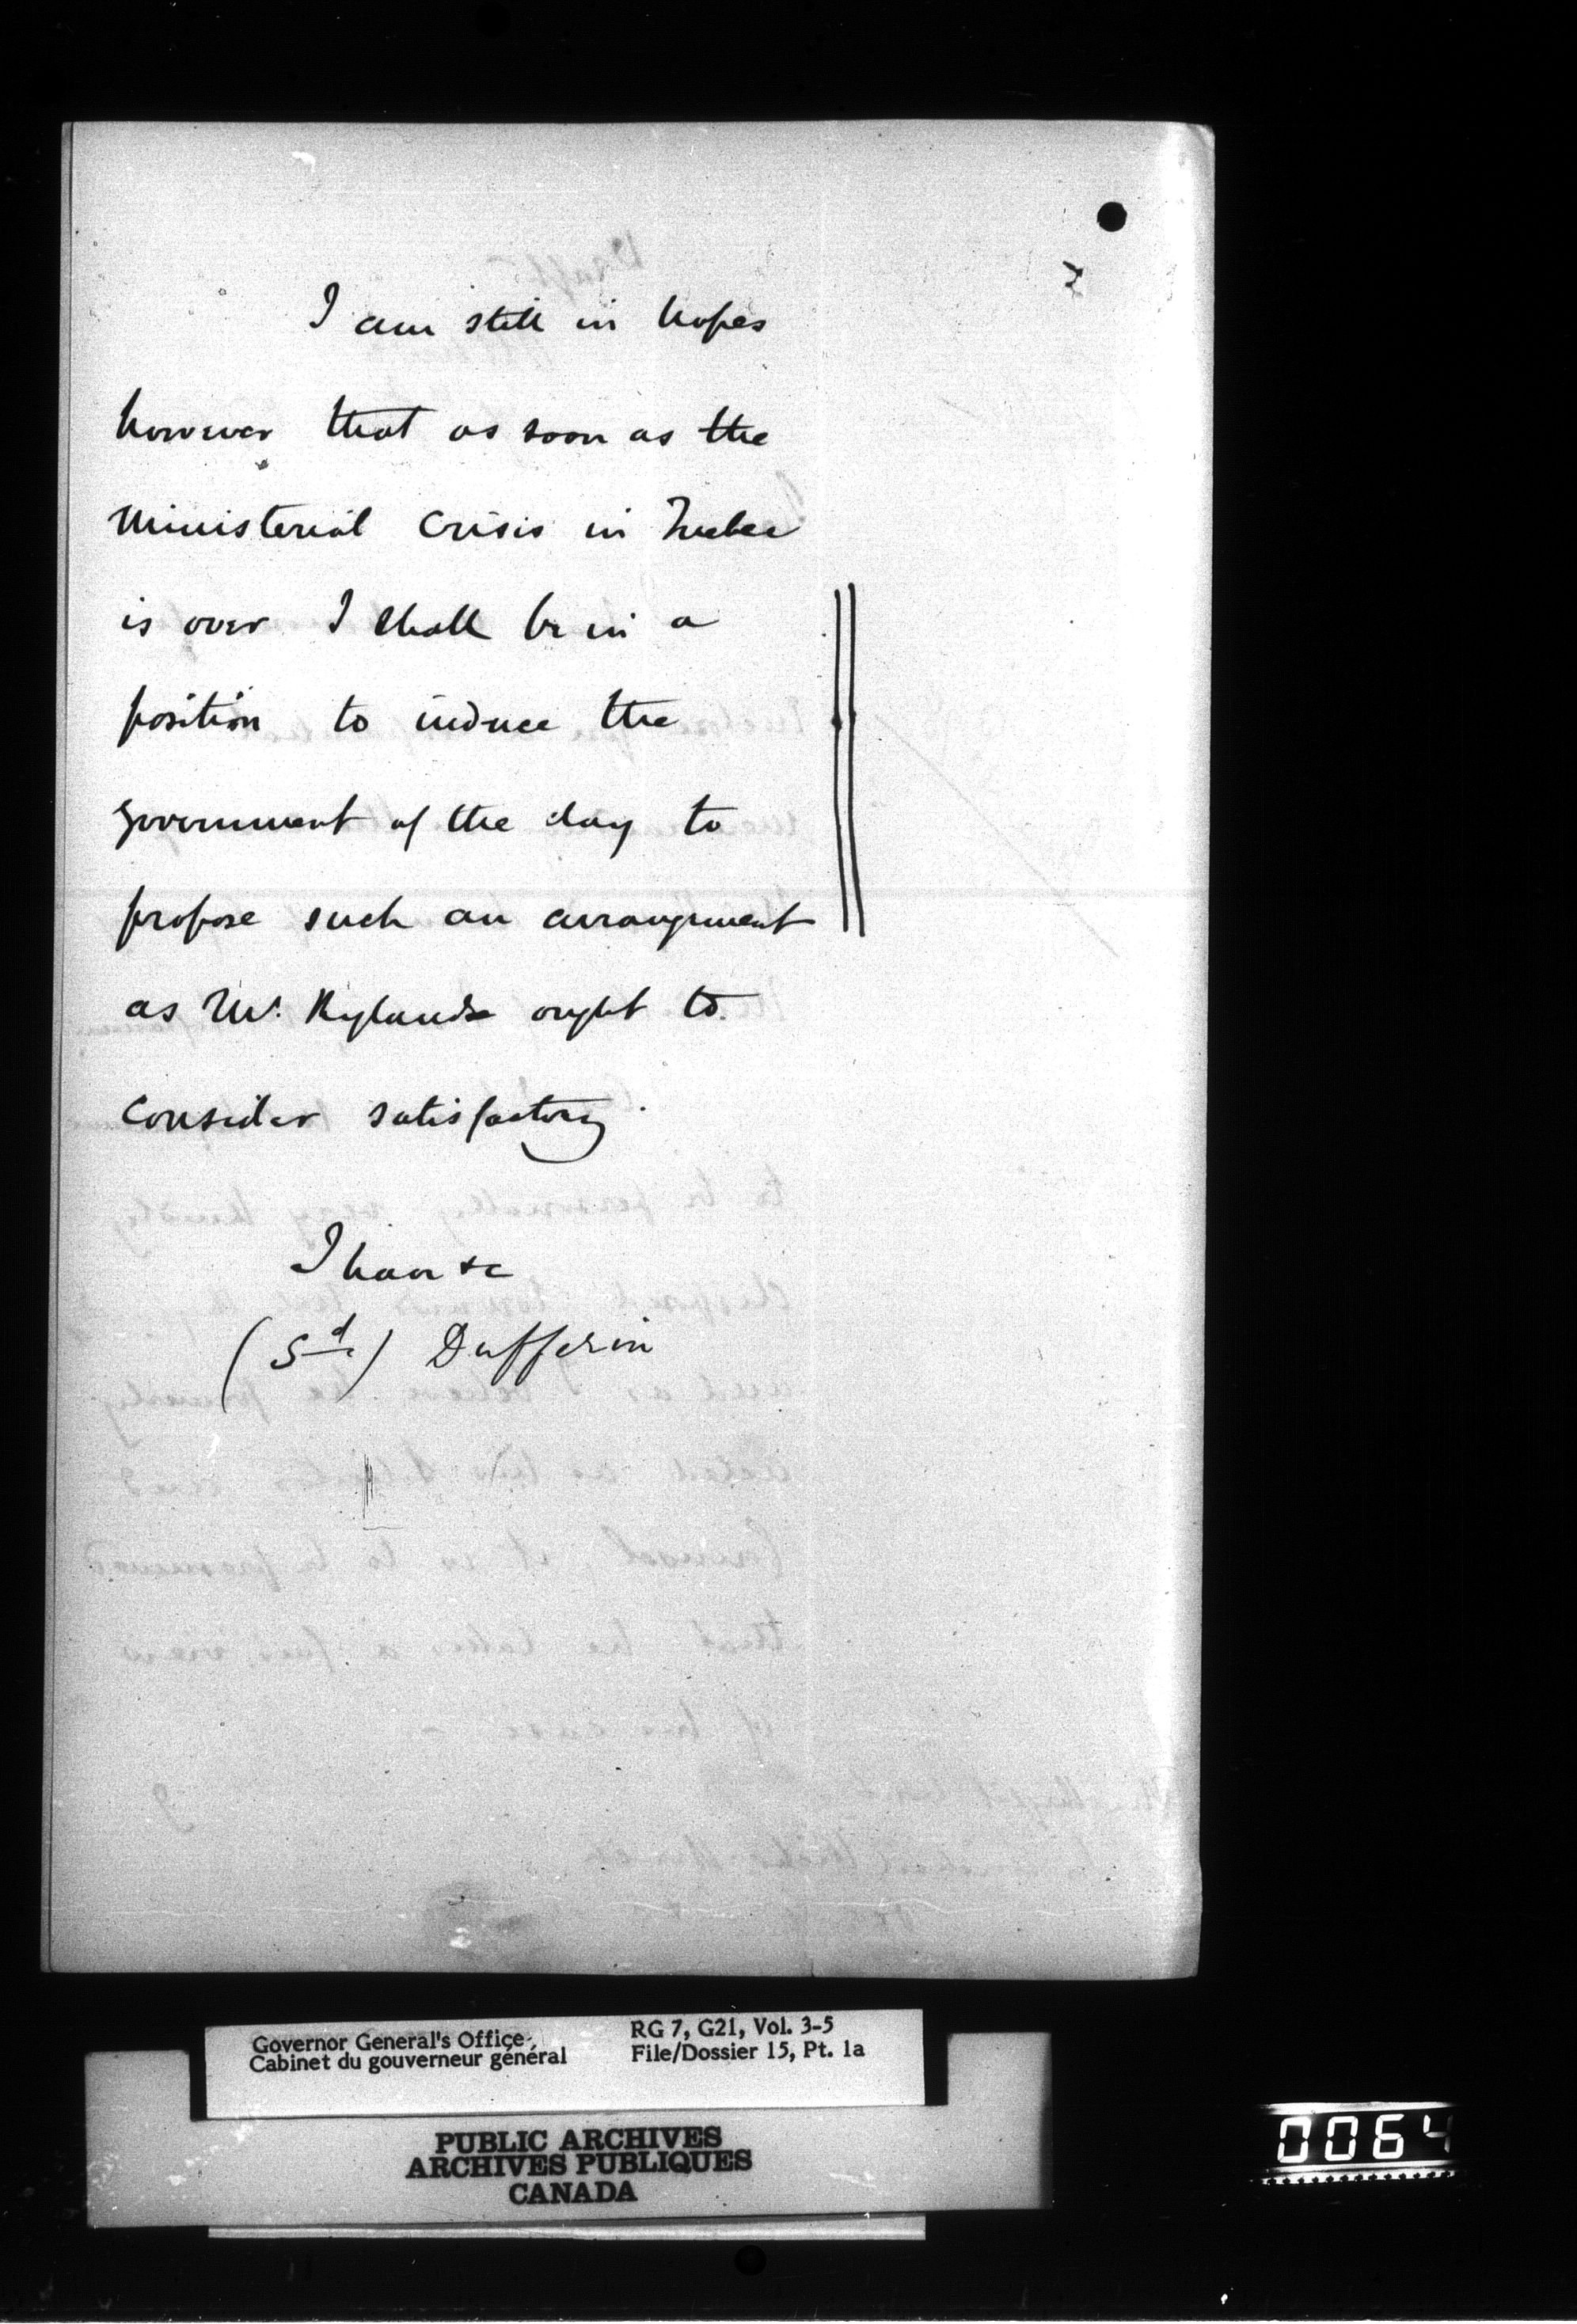 I am still in hopes
however that as soon as the
Ministerial Crisis in Quebec
is over I shall be in a
position to induce the
government of the day to
propose such an arrangement
as Mr. Rylands ought to
consider satisfactory.
I have &c
(Sd) Dufferin
Governor General's Office
Cabinet du gouverneur général
RG 7, G21, Vol. 3-5
File/Dossier 15, Pt. 1a
PUBLIC ARCHIVES
ARCHIVES PUBLIQUES
CANADA
0064